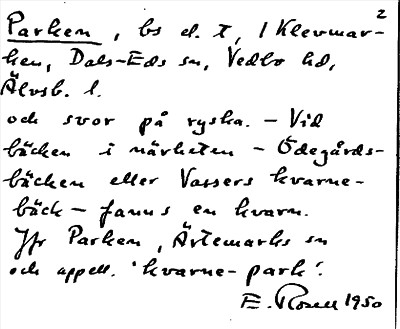 2
Parken, bs el. t, i Klevmar-
ken, Dals-Eds sn, Vedbo hd,
Älvsb. l.
och svor på ryska. – Vid
bäcken i närheten – Ödegårds-
bäcken eller Vassers kvarne-
bäck – fanns en kvarn.
Jfr Parken, Ärtemarks sn
och appell. 'kvarne-park'.
E. Rosell 1950